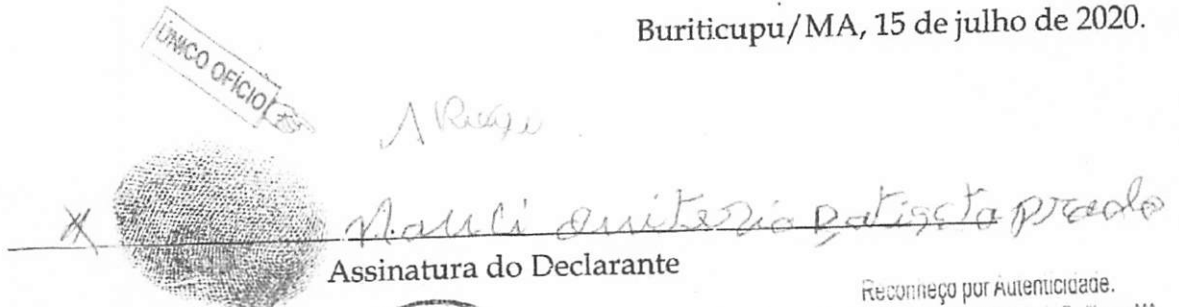 Buriticupu/MA, 15 de julho de 2020.
ÚNICO OFÍCIO
A Rogo
X Mauli quiteria Batista prado
Assinatura do Declarante
Reconheço por Autenticidade.
MA